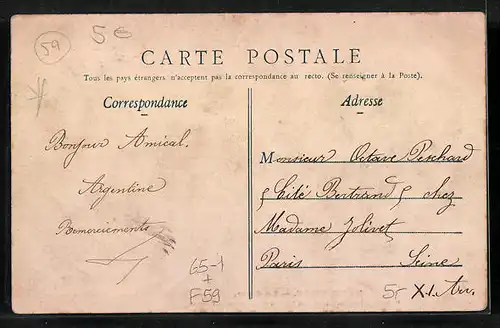 59
5€
CARTE POSTALE
Tous les pays étrangers n'acceptent pas la correspondance au recto. (Se renseigner à la Poste).
Correspondance
Adresse
Bonjour Amical.
Argentine
Remerciements
Monsieur Octave Perchard
5 Cité Bertrand 5 chez
Madame Jolivet
Paris Seine
65-1
+
F59
5r X.I. Arr.